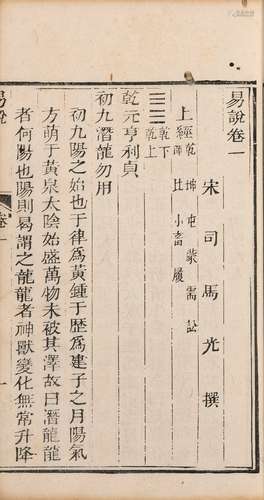 易說卷一
宋司馬光撰
上經乾坤屯蒙需訟師比小畜履
☰☰乾下乾上
乾元亨利貞
初九潛龍勿用
初九陽之始也于律為黃鍾于歷為建子之月陽氣
方萌于黃泉太陰始盛萬物未被其澤故曰潛龍龍
者何陽也陽則曷謂之龍龍者神獸變化無常升降
易說
卷一
一